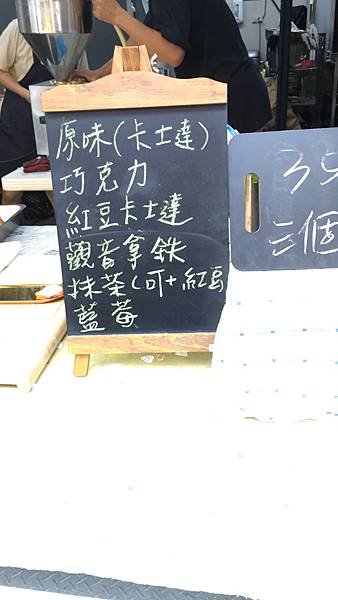 原味(卡士達)
巧克力
紅豆卡士達
觀音拿鉄
抹茶(可+紅豆
藍莓
35
三個